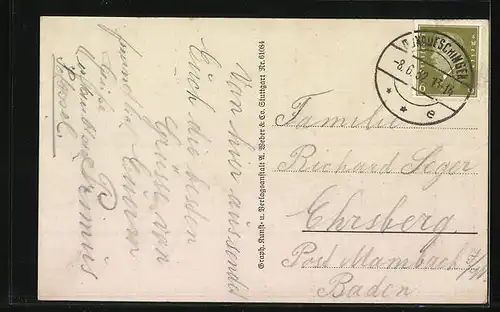 Von hier aus sendet
Euch die besten
Grüsse von
Eurem
Primus
freundl. Grüße
Unbekannt
Graph. Kunst- u. Verlagsanstalt A. Weber & Co. Stuttgart Nr. 61084
DONAUESCHINGEN
-8.6.32.17-18
* * e
6
Familie
Richard Seger
Ehrsberg.
Post Mambach
Baden